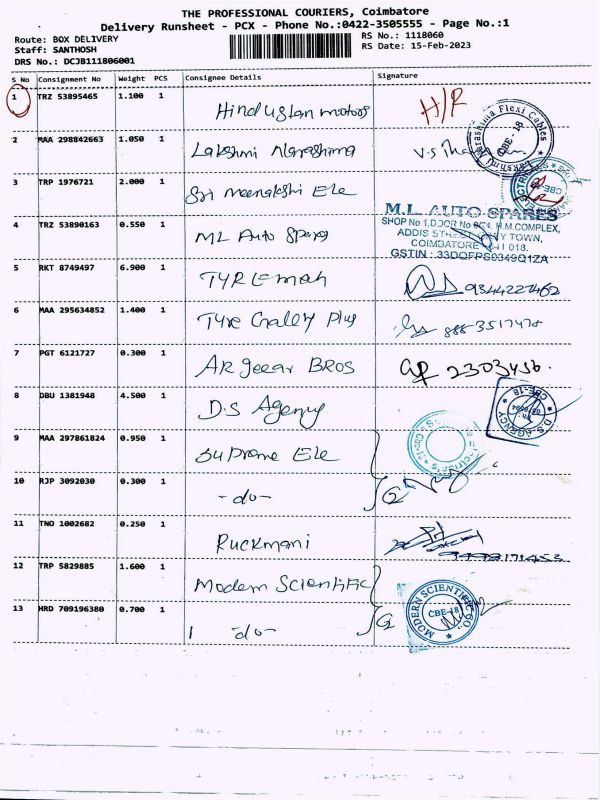 THE PROFESSIONAL COURIERS, Coimbatore
Delivery Runsheet - PCX - Phone No.:0422-3505555 - Page No.:1
Route: BOX DELIVERY
RS No.: 1118060
Staff: SANTHOSH
RS Date: 15-Feb-2023
DRS No.: DCJB111806001
S No Consignment No Weight PCS Consignee Details Signature
1 TRZ 53895465 1.100 1 Hindustan motors H/R
2 MAA 298842663 1.050 1 Lakshmi Narashima V.S
Lakshmi Narashima Flexi Cables
CBE - 18
3 TRP 1976721 2.000 1 Sri meenakshi Ele
4 TRZ 53890163 0.550 1 ML Auto Spares
M.L. AUTO SPARES
SHOP No 1, DOOR No H.M.COMPLEX,
ADDIS STREET, TOWN,
COIMBATORE - 641 018.
GSTIN : 33DQFPS0349Q1ZA
5 RKT 8749497 6.900 1 TYREmah 9344227462
6 MAA 295634852 1.400 1 Tyre Galley Plus 8883517478
7 PGT 6121727 0.300 1 AR geear BROS 2303456.
8 DBU 1381948 4.500 1 D.S Agency
D.S. AGENCY
CBE-18
9 MAA 297861824 0.950 1 Supreme Ele
10 RJP 3092030 0.300 1 -do-
11 TNO 1002682 0.250 1 Ruckmani
12 TRP 5829885 1.600 1 Modern Scientific
13 HRD 709196380 0.700 1 -do-
MODERN SCIENTIFIC CO.
CBE-18